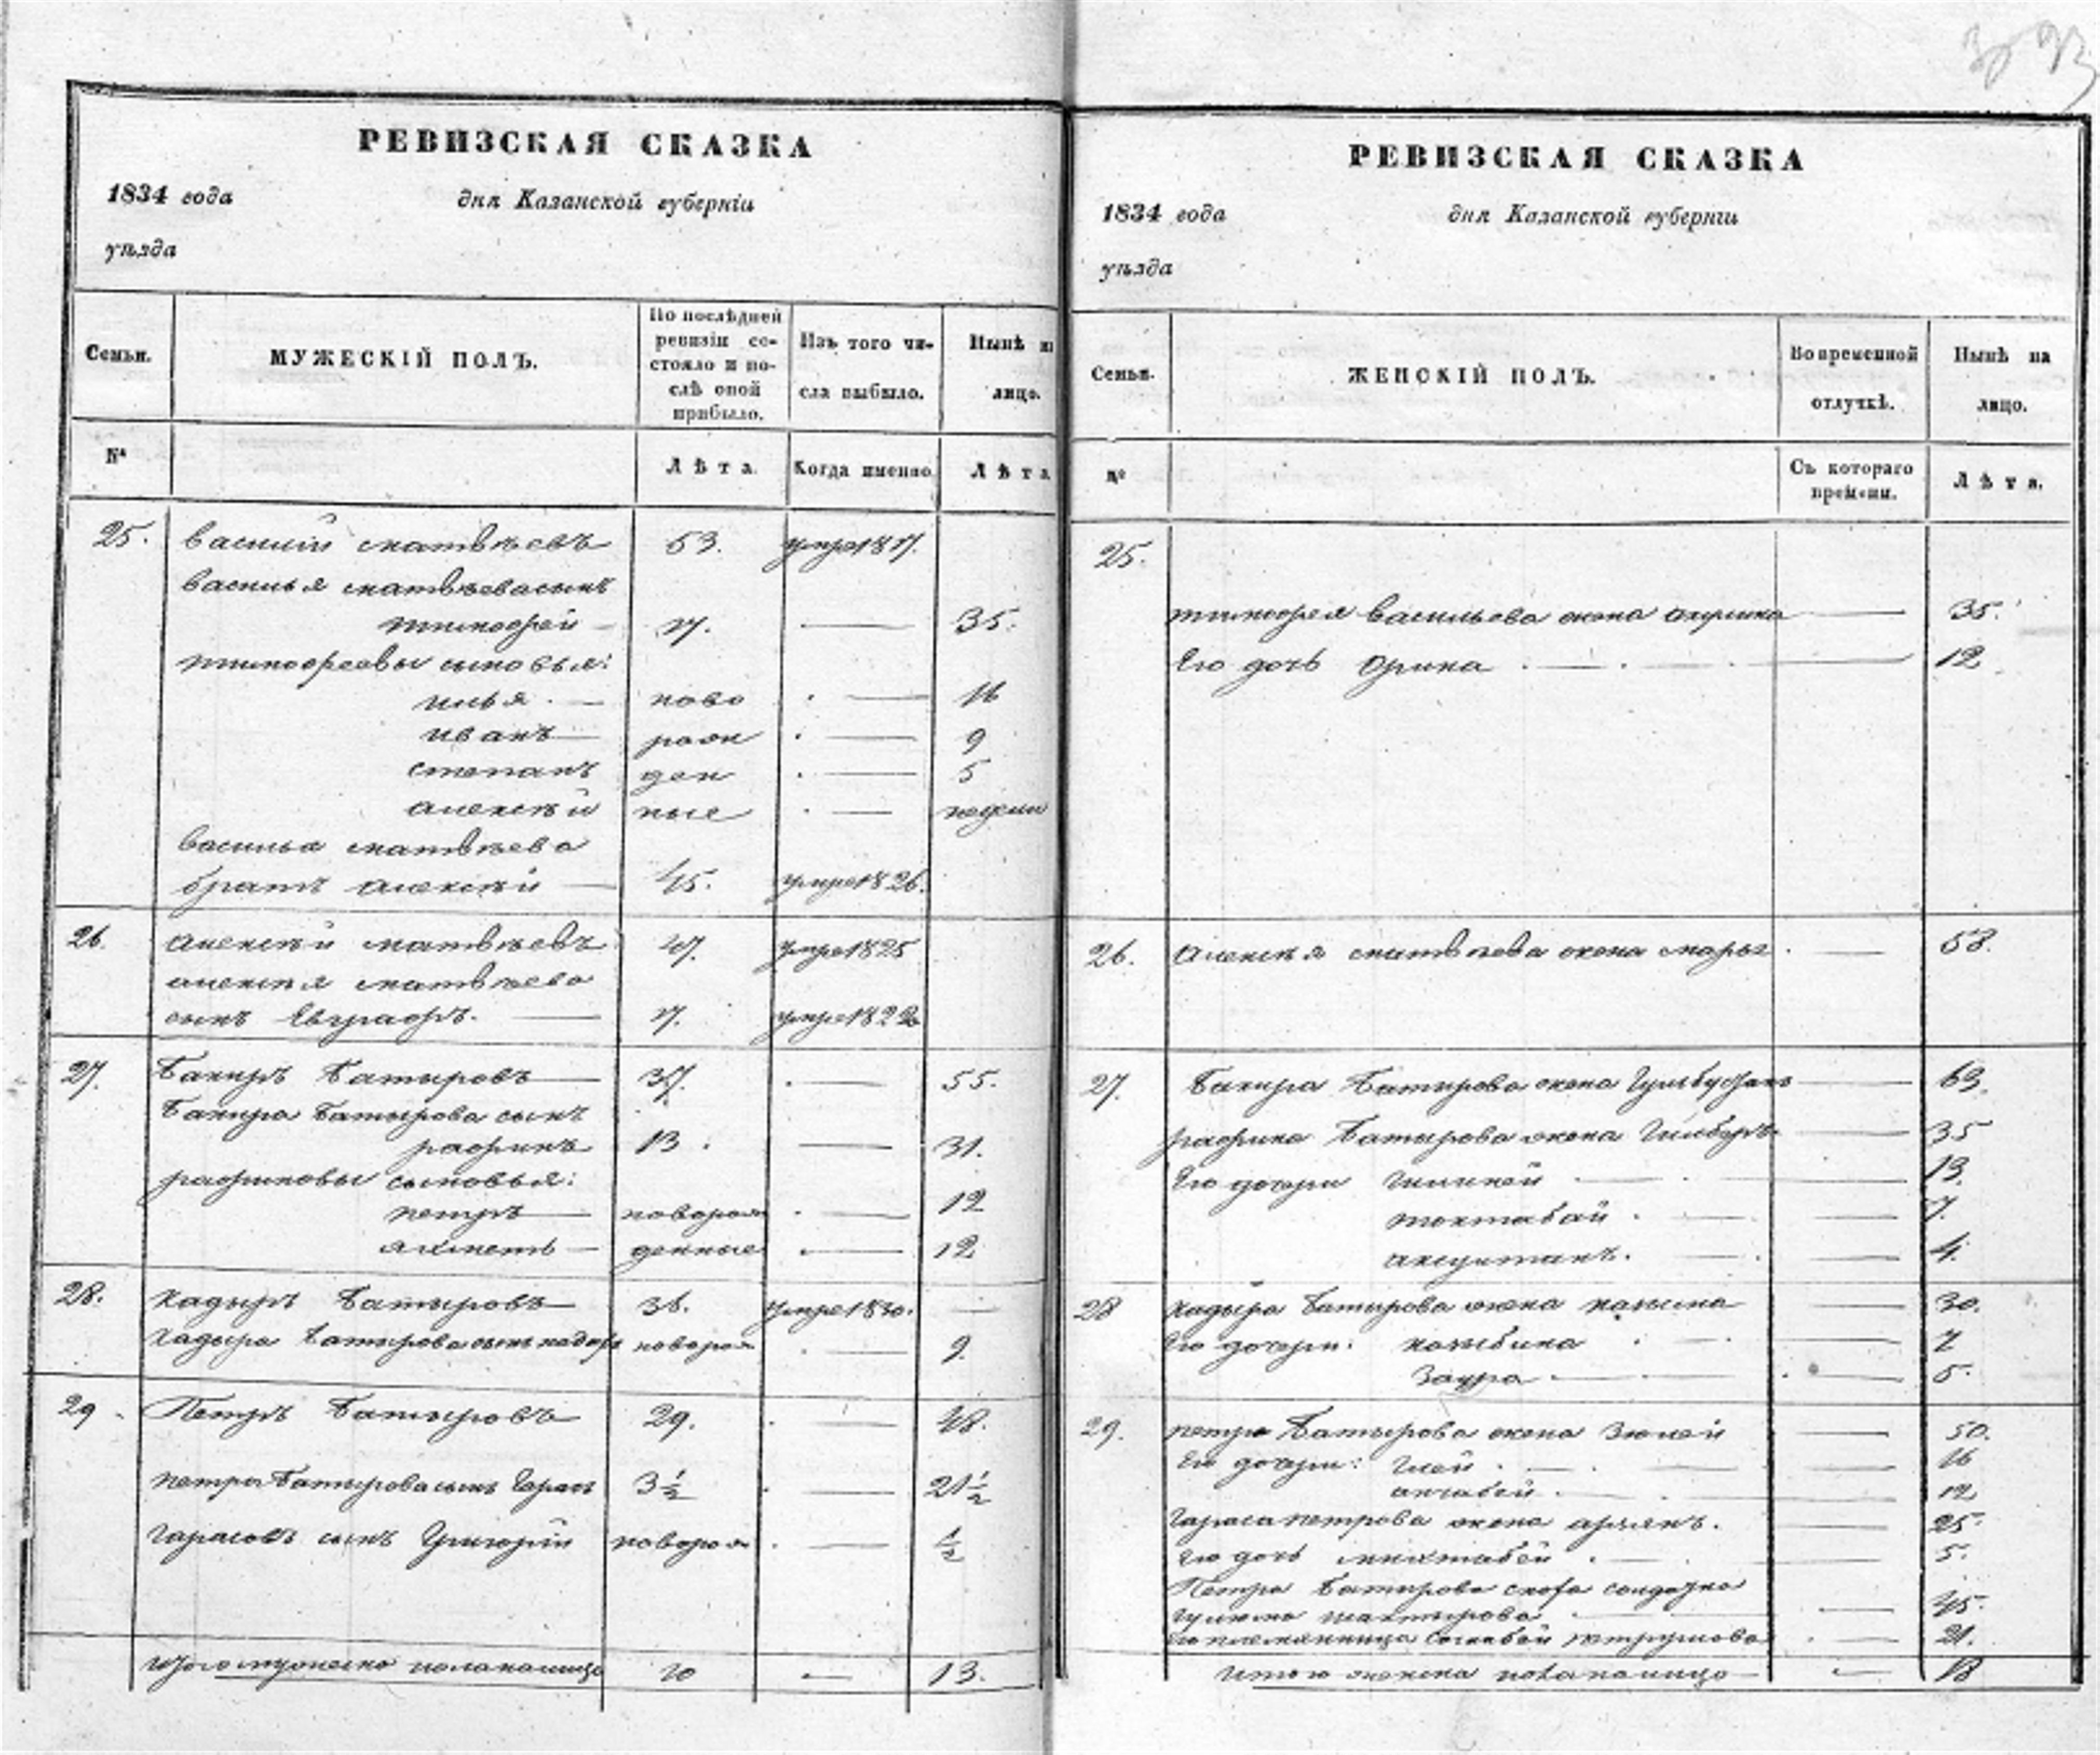 РЕВИЗСКАЯ СКАЗКА
1834 года дня Казанской губерніи
уѣзда
Семьи. МУЖЕСКІЙ ПОЛЪ. По послѣдней ревизіи состояло и послѣ оной прибыло. Изъ того числа выбыло. Нынѣ на лицо.
№ Лѣта. Когда именно. Лѣта
25. Василий Матвѣевъ 53. умре 1817.
Василья Матвѣева сынъ
Тимофей — 17. — 35.
Тимофеевы сыновья:
Илья — ново — 16
Иванъ — рож — 9
Степанъ ден — 5
Алексѣй ные — недели
Василья Матвѣева
братъ Алексѣй — 45. умре 1826.
26. Алексѣй Матвѣевъ 47. умре 1825
Алексѣя Матвѣева
сынъ Евграфъ. — 17. умре 1822
27. Бакиръ Батыровъ — 37. — 55.
Бакира Батырова сынъ
Рафикъ 13. — 31.
Рафиковы сыновья:
Петръ — новорож — 12
Ахметь — денные — 12
28. Кадыръ Батыровъ — 36. умре 1830. —
Кадыра Батырова сынъ новорож — 9.
29. Петръ Батыровъ 29. — 48.
Петра Батырова сынъ Тарас 3½ — 21½
Тарасовъ сынъ Григорий новорож — ½
Итого мужеска пола на лицо 10 — 13.
РЕВИЗСКАЯ СКАЗКА
1834 года дня Казанской губерніи
уѣзда
Семьи. ЖЕНСКІЙ ПОЛЪ. Во временной отлучкѣ. Нынѣ на лицо.
№ Съ котораго времени. Лѣта.
25.
Тимофея Васильева жена Акулина — 35.
Его дочь Орина — 12
26. Алексѣя Матвѣева жена Марья — 58.
27. Бакира Батырова жена — 63.
Рафика Батырова жена — 35
Его дочери — 13.
Тохтабай — 7.
— 4.
28 Кадыра Батырова жена — 30.
Его дочери: — 7
Заура — 5.
29. Петра Батырова жена Зюлей — 50.
Его дочери: — 16
— 12
Тараса Петрова жена — 25.
Его дочь — 5.
Петра Батырова сноха солдатка
— 45.
Его племянница — 21.
Итого женска пола на лицо — 18